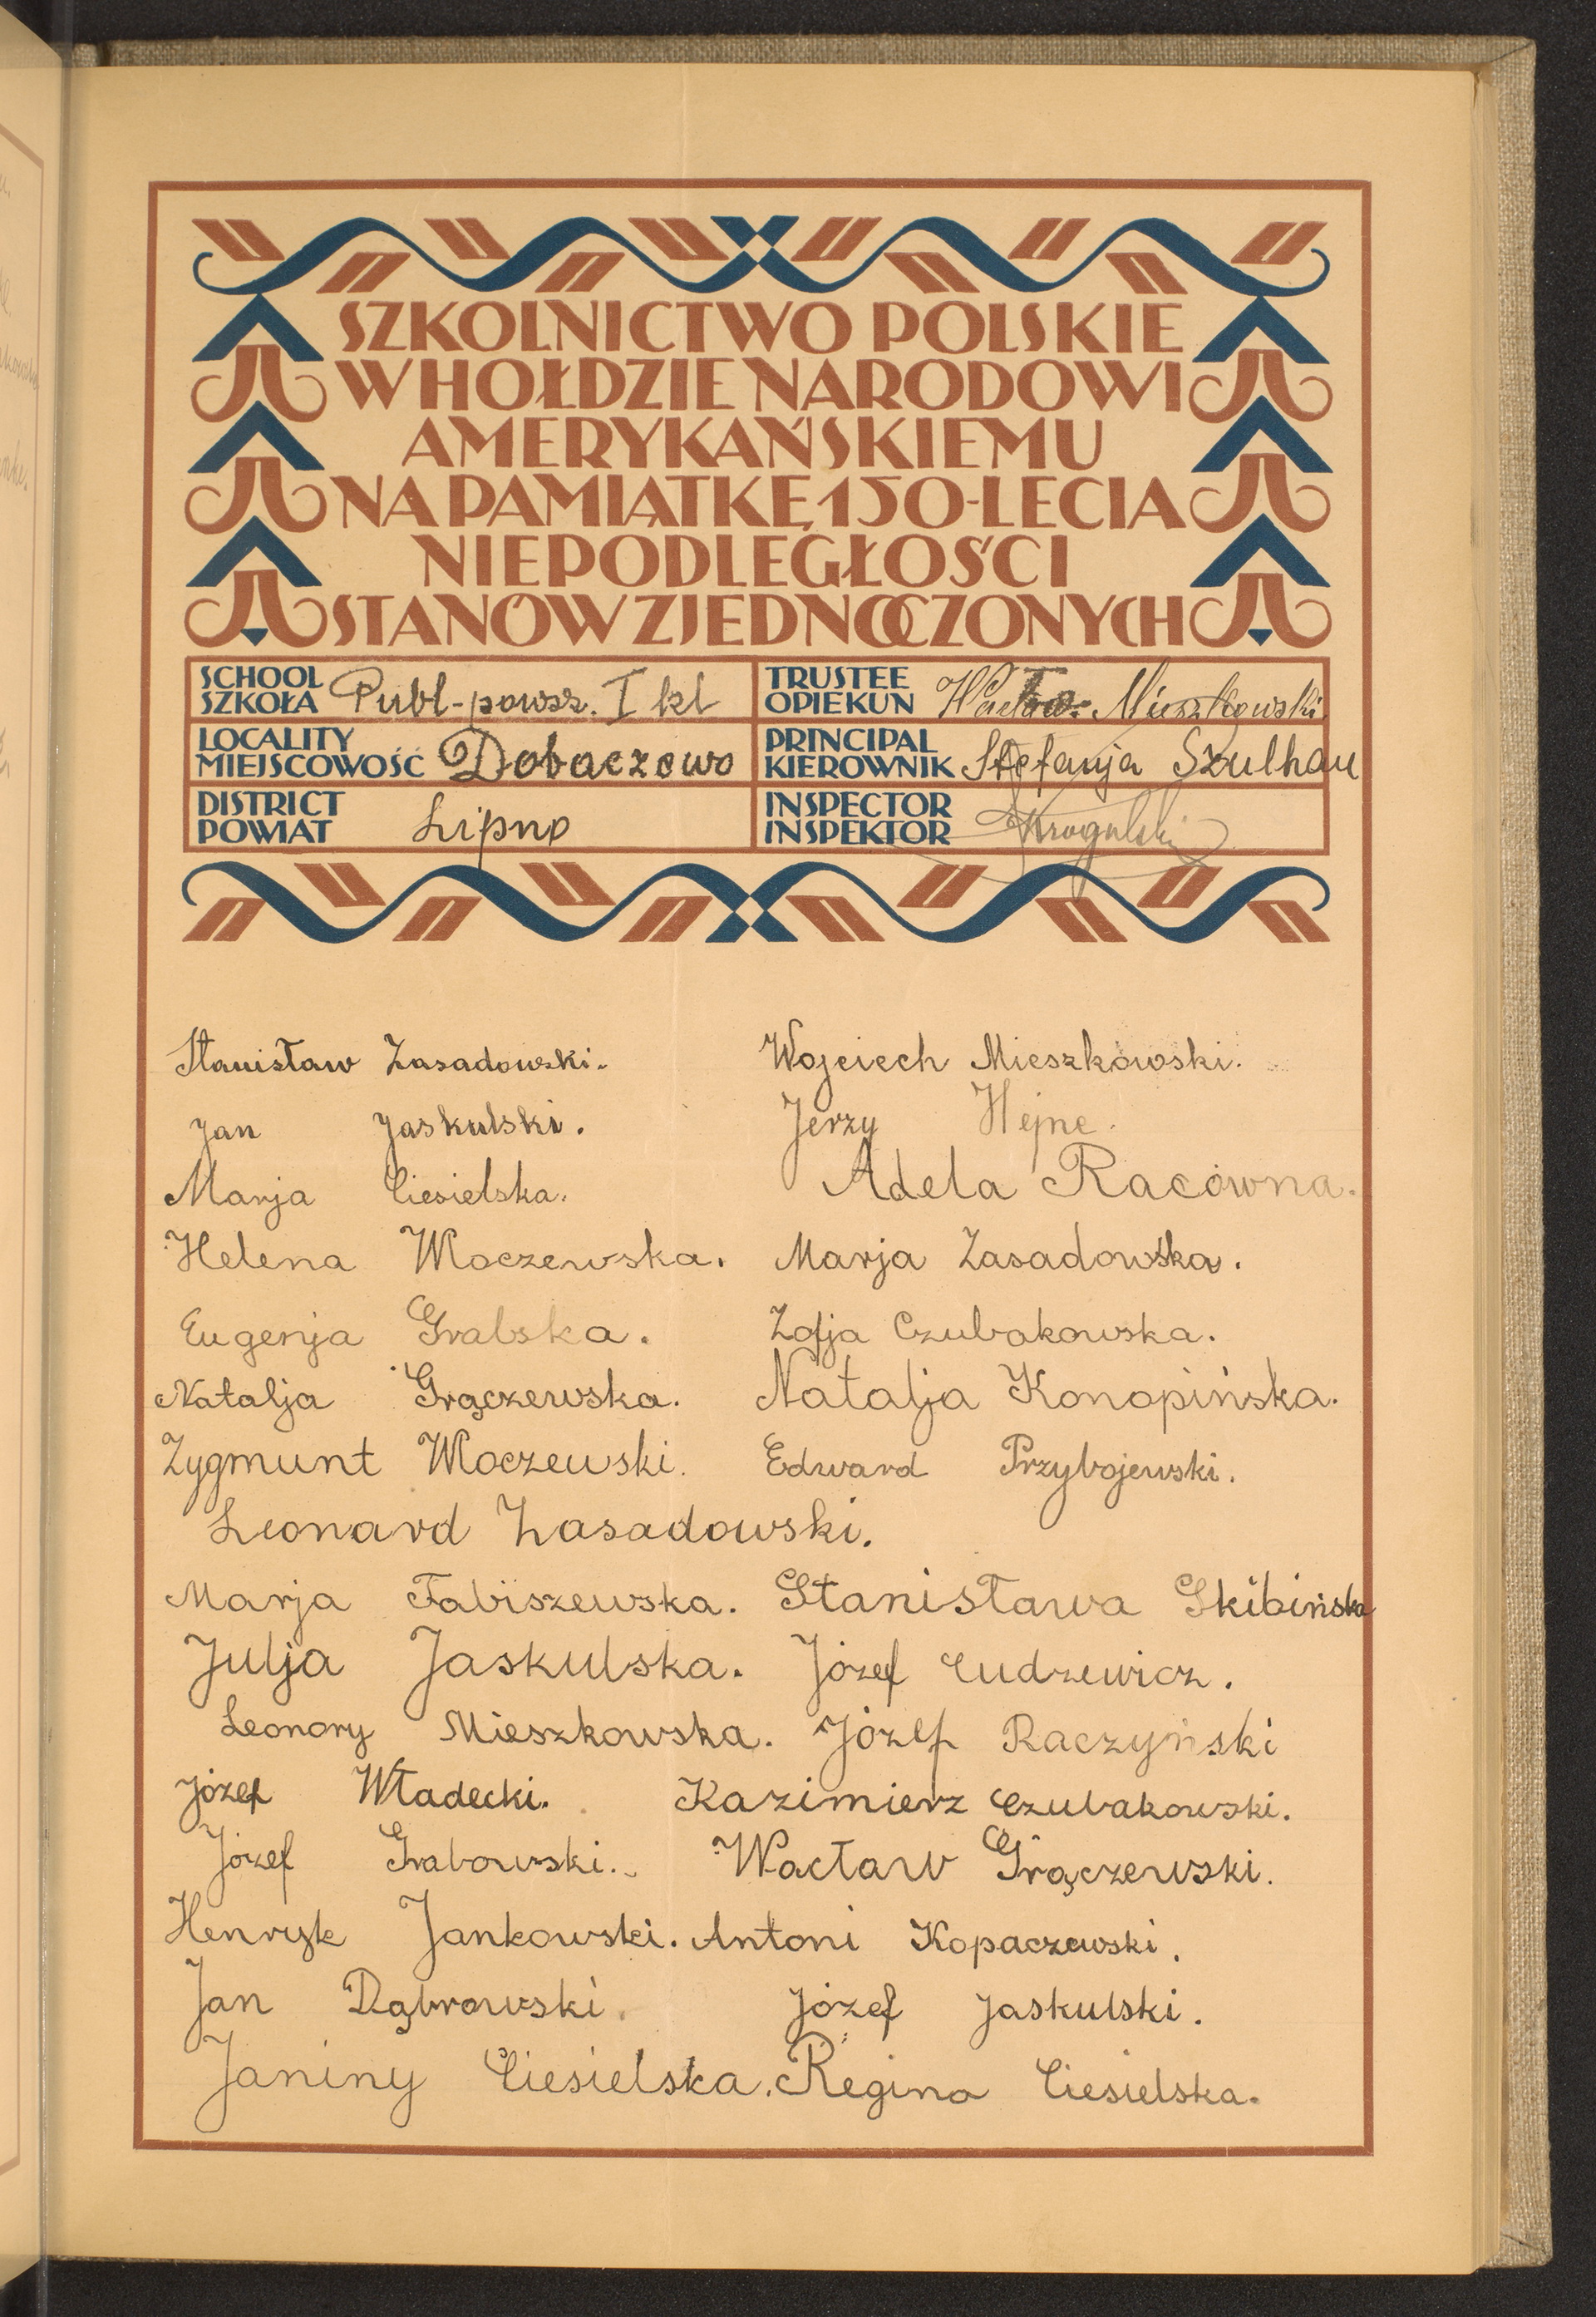 SZKOLNICTWO POLSKIE
W HOŁDZIE NARODOWI
AMERYKAŃSKIEMU
NA PAMIĄTKĘ 150-LECIA
NIEPODLEGŁOŚCI
STANÓW ZJEDNOCZONYCH
SCHOOL
SZKOŁA Publ-powsz. I kl
TRUSTEE
OPIEKUN Wacław Mieszkowski
LOCALITY
MIEJSCOWOŚĆ Dobaczewo
PRINCIPAL
KIEROWNIK Stefanja Szulhau
DISTRICT
POWIAT Lipno
INSPECTOR
INSPEKTOR Krogulski
Stanisław Zasadowski. Wojciech Mieszkowski.
Jan Jaskulski. Jerzy Hejne.
Marja Ciesielska. Adela Racówna.
Helena Wloczewska. Marja Zasadowska.
Eugenja Grabska. Zofja Czubakowska.
Natalja Grączewska. Natalja Konopińska.
Zygmunt Wloczewski. Edward Przybojewski.
Leonard Zasadowski.
Marja Fabiszewska. Stanisława Skibińska
Julja Jaskulska. Józef Cudzewicz.
Leonory Mieszkowska. Józef Raczyński
Józef Władecki. Kazimierz Czubakowski.
Józef Grabowski. Wacław Grączewski.
Henryk Jankowski. Antoni Kopaczewski.
Jan Dąbrowski. Józef Jaskulski.
Janiny Ciesielska. Regina Ciesielska.